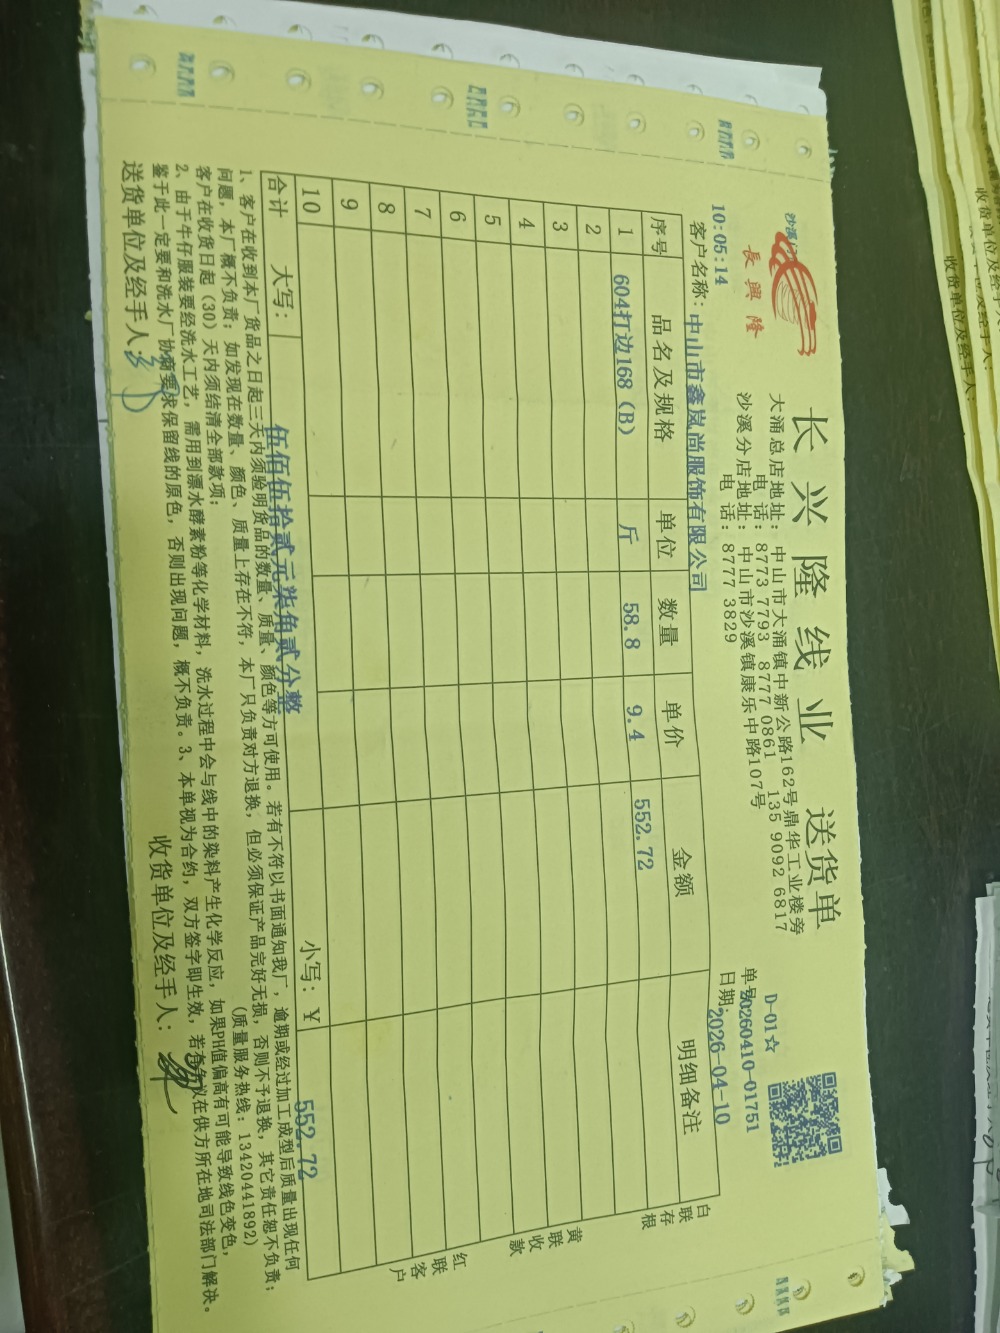 长兴隆线业 送货单
長興隆
大涌总店地址：中山市大涌镇中新公路162号鼎华工业楼旁
电 话：8773 7793 8777 0861 135 9092 6817
沙溪分店地址：中山市沙溪镇康乐中路107号
电 话：8777 3829
D-01☆
单号20260410-01751
日期：2026-04-10
10:05:14
客户名称：中山市鑫岚尚服饰有限公司
序号 品名及规格 单位 数量 单价 金额 明细备注
1 604打边168（B） 斤 58.8 9.4 552.72
2
3
4
5
6
7
8
9
10
合计 大写：伍佰伍拾贰元柒角贰分整 小写：￥552.72
白联存根
黄联收款
红联客户
1、客户在收到本厂货品之日起三天内须验明货品的数量、质量、颜色等方可使用。若有不符以书面通知我厂，逾期或经过加工成型后质量出现任何
问题，本厂概不负责；如发现在数量、颜色、质量上存在不符，本厂只负责对方退换，但必须保证产品完好无损，否则不予退换，其它责任恕不负责；
客户在收货日起（30）天内须结清全部款项； （质量服务热线：13420441892）
2、由于牛仔服装要经洗水工艺，需用到漂水酵素粉等化学材料，洗水过程中会与线中的染料产生化学反应，如果PH值偏高有可能导致线色变色，
鉴于此一定要和洗水厂协商要求保留线的原色，否则出现问题，概不负责。3、本单视为合约，双方签字即生效，若有争议在供方所在地司法部门解决。
送货单位及经手人： 收货单位及经手人：
收货单位及经手人：
收货单位及经手人：